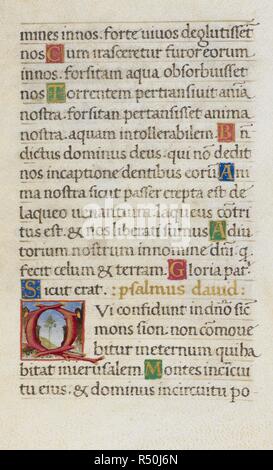 mines in nos. forte uiuos deglutisset
nos Cum irasceretur furor eorum
in nos. forsitam aqua obsorbuisset
nos Torrentem pertransiuit aniā
nostra. forsitan pertansisset anima
nostra. aquam intollerabilem Bn̄
dictus dominus deus. qui nō dedit
nos in captione dentibus eorū Ani
ma nostra sicut passer erepta est de
laqueo uenantium laqueus cōtri
tus est. & nos liberati sumus Adiu
torium nostrum in nomine dn̄i. q̄
fecit celum & terram. Gloria patr̄.
Sicut erat. : psalmus dauid :
QVi confidunt in dn̄o sic̄
mons sion. non cōmoue
bitur in eternum qui ha
bitat in ierusalem Montes in circui
tu eius. & dominus in circuitu po
alamy
Image ID: R50J6N
www.alamy.com